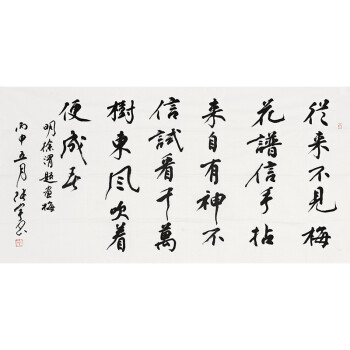 從来不見梅
花譜信手拈
来自有神不
信試看千萬
樹東風吹着
便成春
明徐渭題畫梅
丙申五月